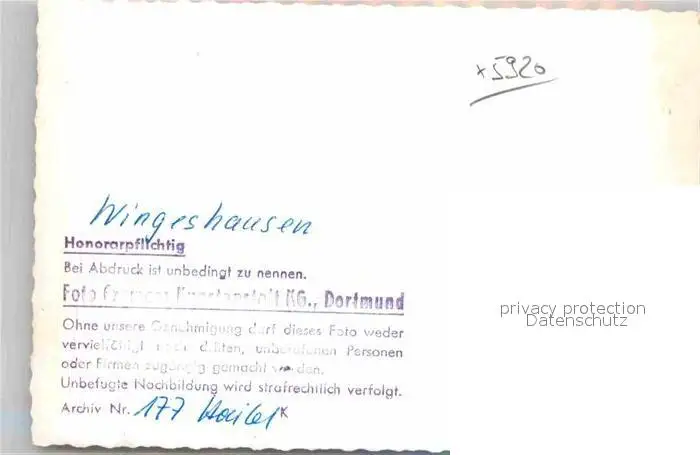 5920
Wingeshausen
Honorarpflichtig
Bei Abdruck ist unbedingt zu nennen.
Foto Kunstanstalt KG., Dortmund
Ohne unsere Genehmigung darf dieses Foto weder
vervielfältigt noch dritten, unberufenen Personen
oder Firmen zugängig gemacht werden.
Unbefugte Nachbildung wird strafrechtlich verfolgt.
Archiv Nr. 177 K
privacy protection
Datenschutz